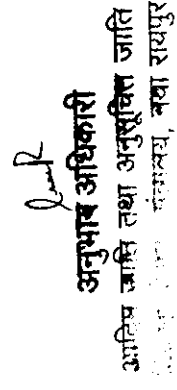 अनुभाग अधिकारी
आदिम जाति तथा अनुसूचित जाति
मंत्रालय, नवा रायपुर